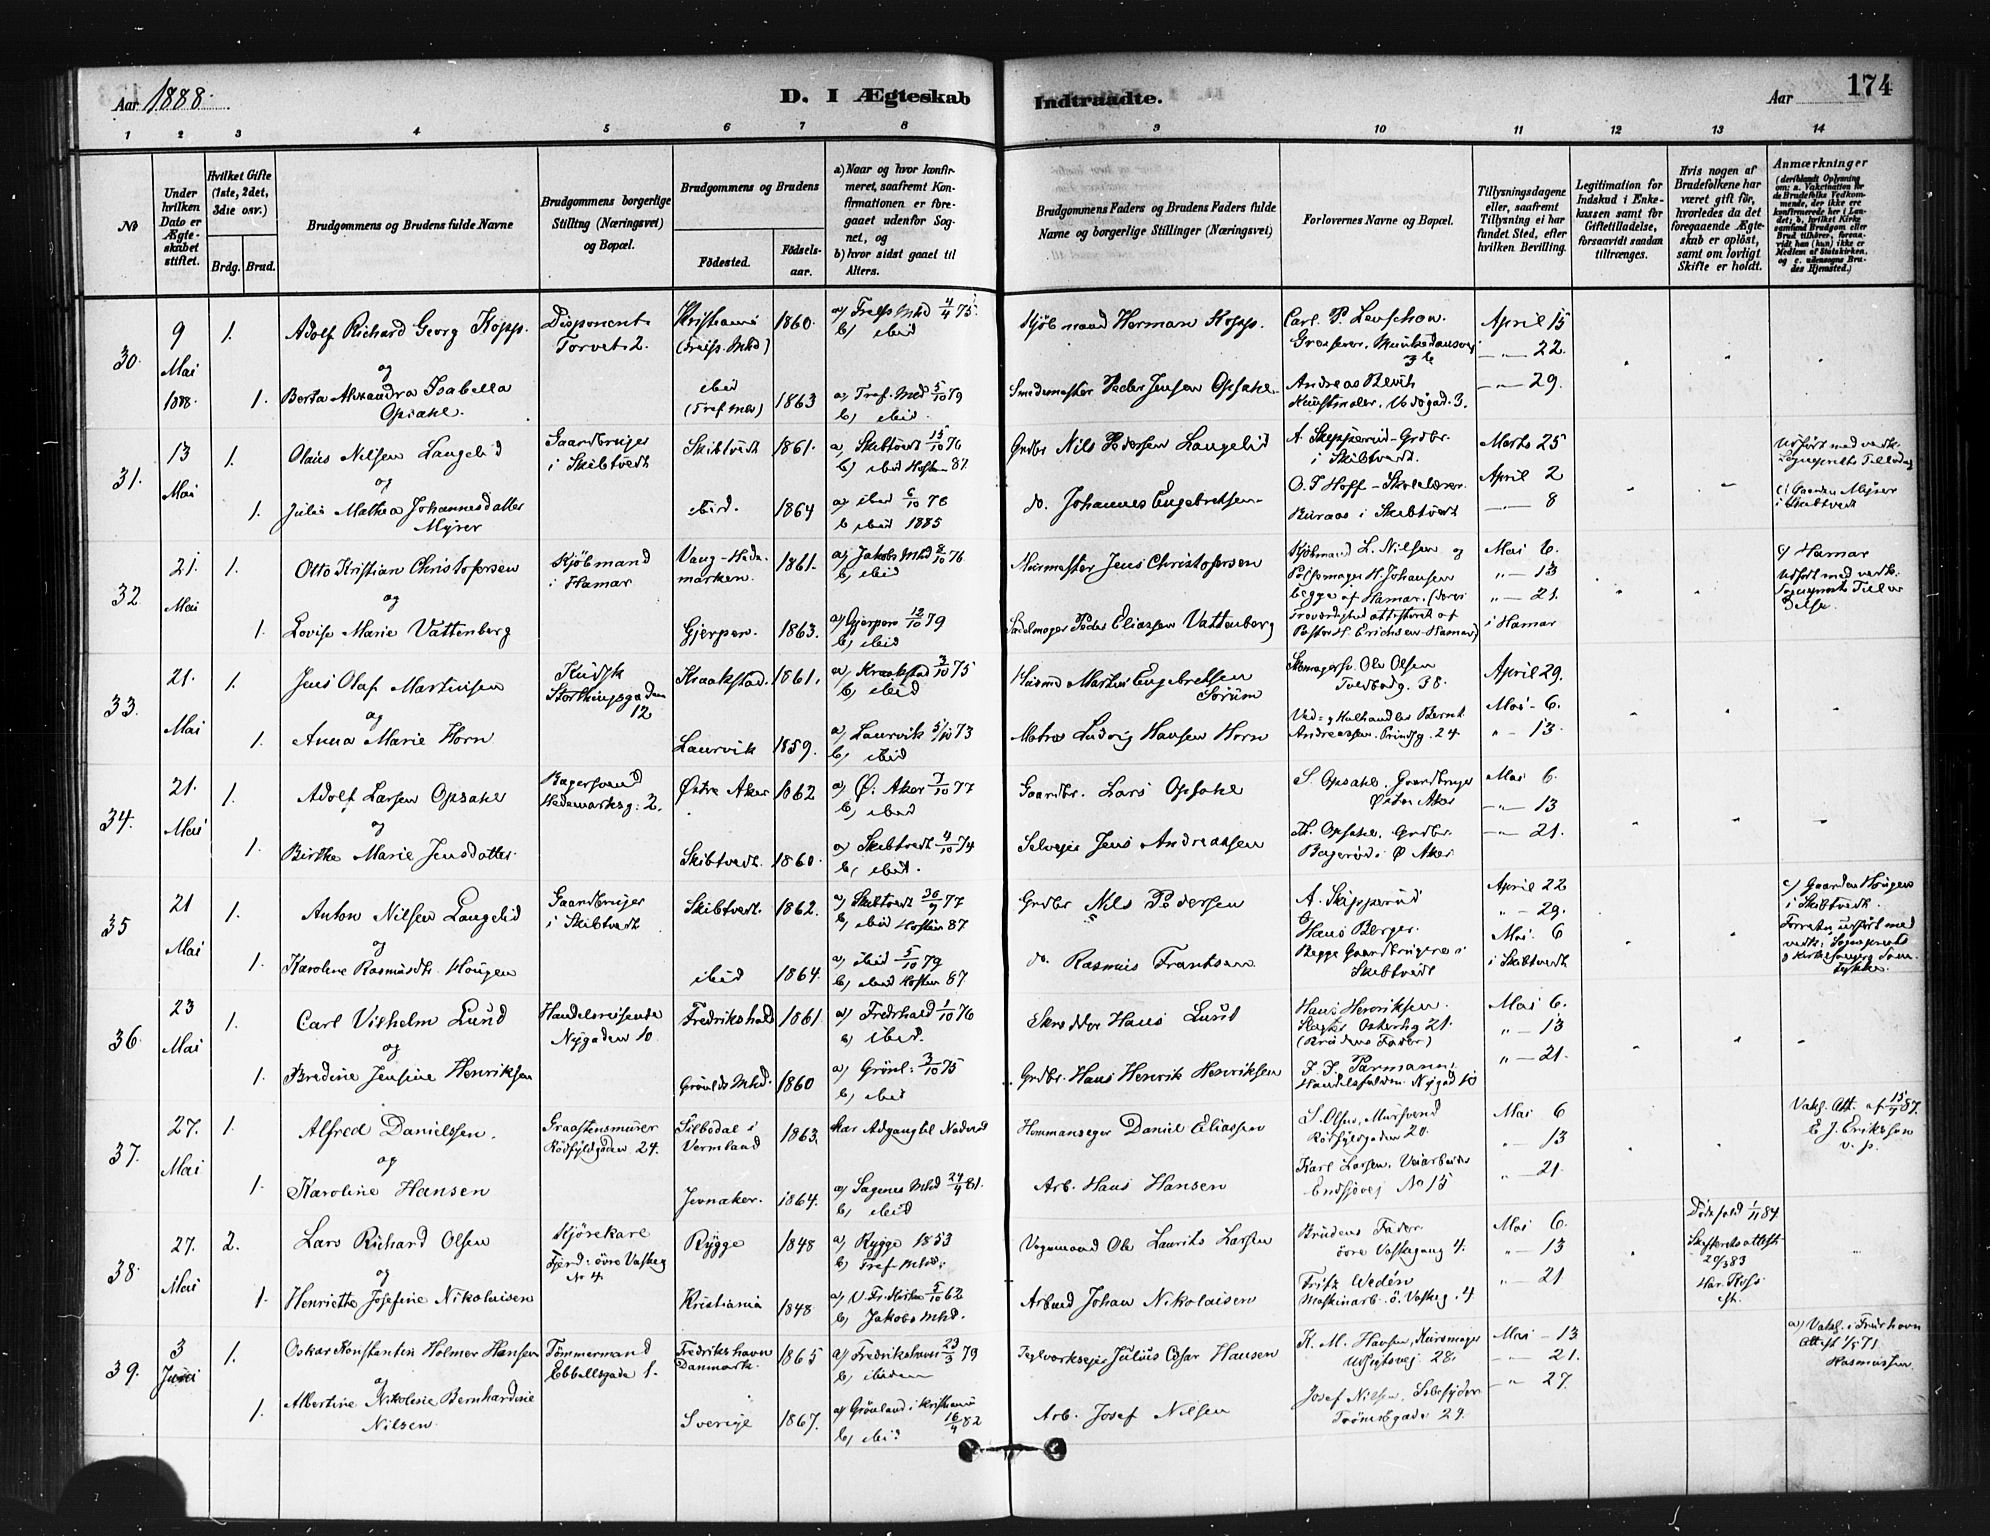 Aar 1888. D. I Ægteskab Indtraadte. Aar 174
1 2 3 4 5 6 7 8 9 10 11 12 13 14
No
Under hvilken Dato er Ægteskabet stiftet.
Hvilket Gifte (1ste, 2det, 3die osv.)
Brdg. Brud.
Brudgommens og Brudens fulde Navne
Brudgommens borgerlige Stilling (Næringsvei) og Bopæl.
Brudgommens og Brudens
Fødested.
Fødselsaar.
a) Naar og hvor konfirmeret, saafremt Konfirmationen er foregaaet udenfor Sognet, og
b) hvor sidst gaaet til Alters.
Brudgommens Faders og Brudens Faders fulde Navne og borgerlige Stillinger (Næringsvei)
Forlovernes Navne og Bopæl.
Tillysningsdagene eller, saafremt Tillysning ei har fundet Sted, efter hvilken Bevilling.
Legitimation for Indskud i Enkekassen samt for Giftetilladelse, forsaavidt saadan tiltrænges.
Hvis nogen af Brudefolkene har været gift før, hvorledes da det foregaaende Ægteskab er opløst, samt om lovligt Skifte er holdt.
Anmærkninger (deriblandt Oplysning om: a. Vakcination for de Brudefolks Vedkommende, der ikke ere konfirmerede her i Landet; b. hvilket Kirkesamfund Brudgom eller Brud tilhører, forsaavidt han (hun) ikke er Medlem af Statskirken, og c. udensogns Brudes Hjemsted.)
30. 9 Mai 1888. 1. Adolf Richard Georg Kopp. Disponent Torvet 2. Kristiania (Trefs. Mhd) 1860. a) Trefs Mhd 4/4 75. b) ibid Kjøbmand Herman Kopp. Carl P. Levschow. Grosserer, Munkedamsvej 3 b April 15
" 22.
og
1. Berta Alexandra Isabella Opsahl. ibid (Tref Mhd) 1863 a) Tref. Mhd 5/10 79 b) ibid. Smedemester Peder Jensen Opsahl. Andreas Bloch Kunstmaler. 3. " 29.
31. 13 Mai 1. Olaus Nilsen Langelid Gaardbruger i Skibtvedt Skibtvedt 1861. a) Skibtvedt 15/10 76 b) ibid Høsten 87 Grdbr Nils Pedersen Langelid A. Skipperud - Grdbr. i Skibtvedt. Marts 25 April 2 Udført med vedk. Sogneprests
og
1. Julie Mathea Johannesdatter Myrer ibid. 1864 a) ibid 6/10 78 b) ibid 1885 do. Johannes Engebretsen O. T. Hoff - Skolelærer. Buraas i Skibtvedt " 8 i Skibtvedt
32. 21. Mai 1. Otto Kristian Christofersen Kjøbmand i Hamar Vang - Hedemarken. 1861. a) Jakobs Mhd 8/10 76 b) ibid Murmester Jens Christofersen Kjøbmand L. Nilsen og Pølsemager H. Johansen begge af Hamar. Mai 6. " 13 " 21. c) Hamar Udført med vedk. Sogneprests
og
1. Lovise Marie Vattenberg Gjerpen. 1863. a) Gjerpen 12/10 79 b) ibid Sadelmager Peder Eliassen Vattenberg Troværdighed attesteret af Pastor H. Erichsen - Hamar) i Hamar
33. 21. Mai 1. Jens Olaf Martinsen Kudsk Storthingsgaden 12 Kraakstad. 1861. a) Kraakstad 3/10 75 b) ibid Husmd Martin Engebretsen Sørum Skomagersv. Ole Olsen Tvedbodg. 38. April 29. Mai 6.
og
1. Anna Marie Horn Laurvik 1859. a) Laurvik 5/10 73 b) ibid Matros Ludvig Hansen Horn Ved- og Kulhandler Bernt Andreassen. Prindsg. 24 " 13.
34. 21. Mai 1. Adolf Larsen Opsahl Bagersvend Hedemarksg: 2. Østre Aker 1862 a) Ø. Aker 7/10 77 b) ibid Gaardbr. Lars Opsahl S. Opsahl. Gaardbruger Østre Aker Mai 6. " 13
og
1. Birthe Marie Jensdatter. Skibtvedt. 1860. a) Skibtvedt 4/10 74 b) ibid. Selveier Jens Andreassen Th. Opsahl. Grdbr. Bogerud i Ø Aker " 21.
35 21 Mai 1. Anton Nilsen Langelid Gaardbruger i Skibtvedt Skibtvedt. 1862. a) Skibtvedt 30/9 77 b) ibid Høsten 87 Grdbr Nils Pedersen A. Skipperud og Hans Berger. April 22 " 29. Mai. 6 c) Gaarden Hougen i Skibtvedt.
og
1. Karoline Rasmusdtr. Hougen ibid 1864. a) ibid 5/10 79 b) ibid Høsten 87 do. Rasmus Frantsen Begge Gaardbrugere i Skibtvedt i Skibtvedt Forretn. udført med vedk. Sogneprests
36. 23 Mai 1. Carl Vilhelm Lund Handelsreisende Nygaden 10 Fredrikshald 1861 a) Fredrhald 1/10 76 b) ibid. Skrædder Hans Lund Hans Henriksen. Østerhg 21. (Brudens Fader) Mai 6. " 13
og
1. Bredine Jensine Henriksen Grønlds Mhd. 1860 a) Grønl: 3/10 75 b) ibid Grdbr. Hans Henrik Henriksen J. J. Parmann. Handelsfuldm. Nygad 10 " 21.
37. 27. Mai 1. Alfred Danielssen. Graastensmurer Rødfyldgaden 24. Silbodal i Vermland 1863. Har Adgang til Nadverd Hemmanseger Daniel Eliassen S. Olsen, Mursvend Rødfyldgaden 20. Mai 6 " 13 Vaks. Att. af 15/4 87. E J. Eriksson v. p.
og
1. Karoline Hansen Jevnaker. 1864. a) Sagenes Mhd 24/4 81. b) ibid Arb. Hans Hansen Karl Larsen, Veiarbeider Ensjøvej No 15 " 21.
38. 27. Mai 2. Lars Richard Olsen Kjørekarl Fjerd. øvre Vaskeg No 4. Rygge 1848 a) Rygge 1853 b) Tref Mhd. Vognmand Ole Laurits Larsen Brudens Fader. øvre Vaskegang 4. Mai 6. " 13 Dødsfald 1/11 84. Skifteretsattest 20/3 83
og
1. Henriette Josefine Nikolaisen Kristiania 1848 a) V. Fr. Kirke 5/10 62 b) Jakobs Mhd. Arbmd Johan Nikolaisen Fritz Wedén Maskinarb. ö. Vaskeg. 4 " 21
39. 3 Juni 1. Oskar Konstantin Holmer Hansen Tømmermand Ebbellsgade 1. Fredrikshavn Danmark. 1865 a) Fredrikshavn 23/3 79 b) ibidem Teglverkseier Julius Cesar Hansen K. M. Hansen, Kurvmager Udsigtsvej 28. Mai - 13 " 21. a) Vaks. i Fredrhavn Att. af 1/5 71 Rasmussen.
og
1. Albertine Nikoline Bernhardine Nilsen. Sverige 1867. a) Grønland i Kristiania 16/4 82 b) ibid Arb. Josef Nilsen Josef Nilsen, Sæbesyder Trømsøgade 29. " 27.